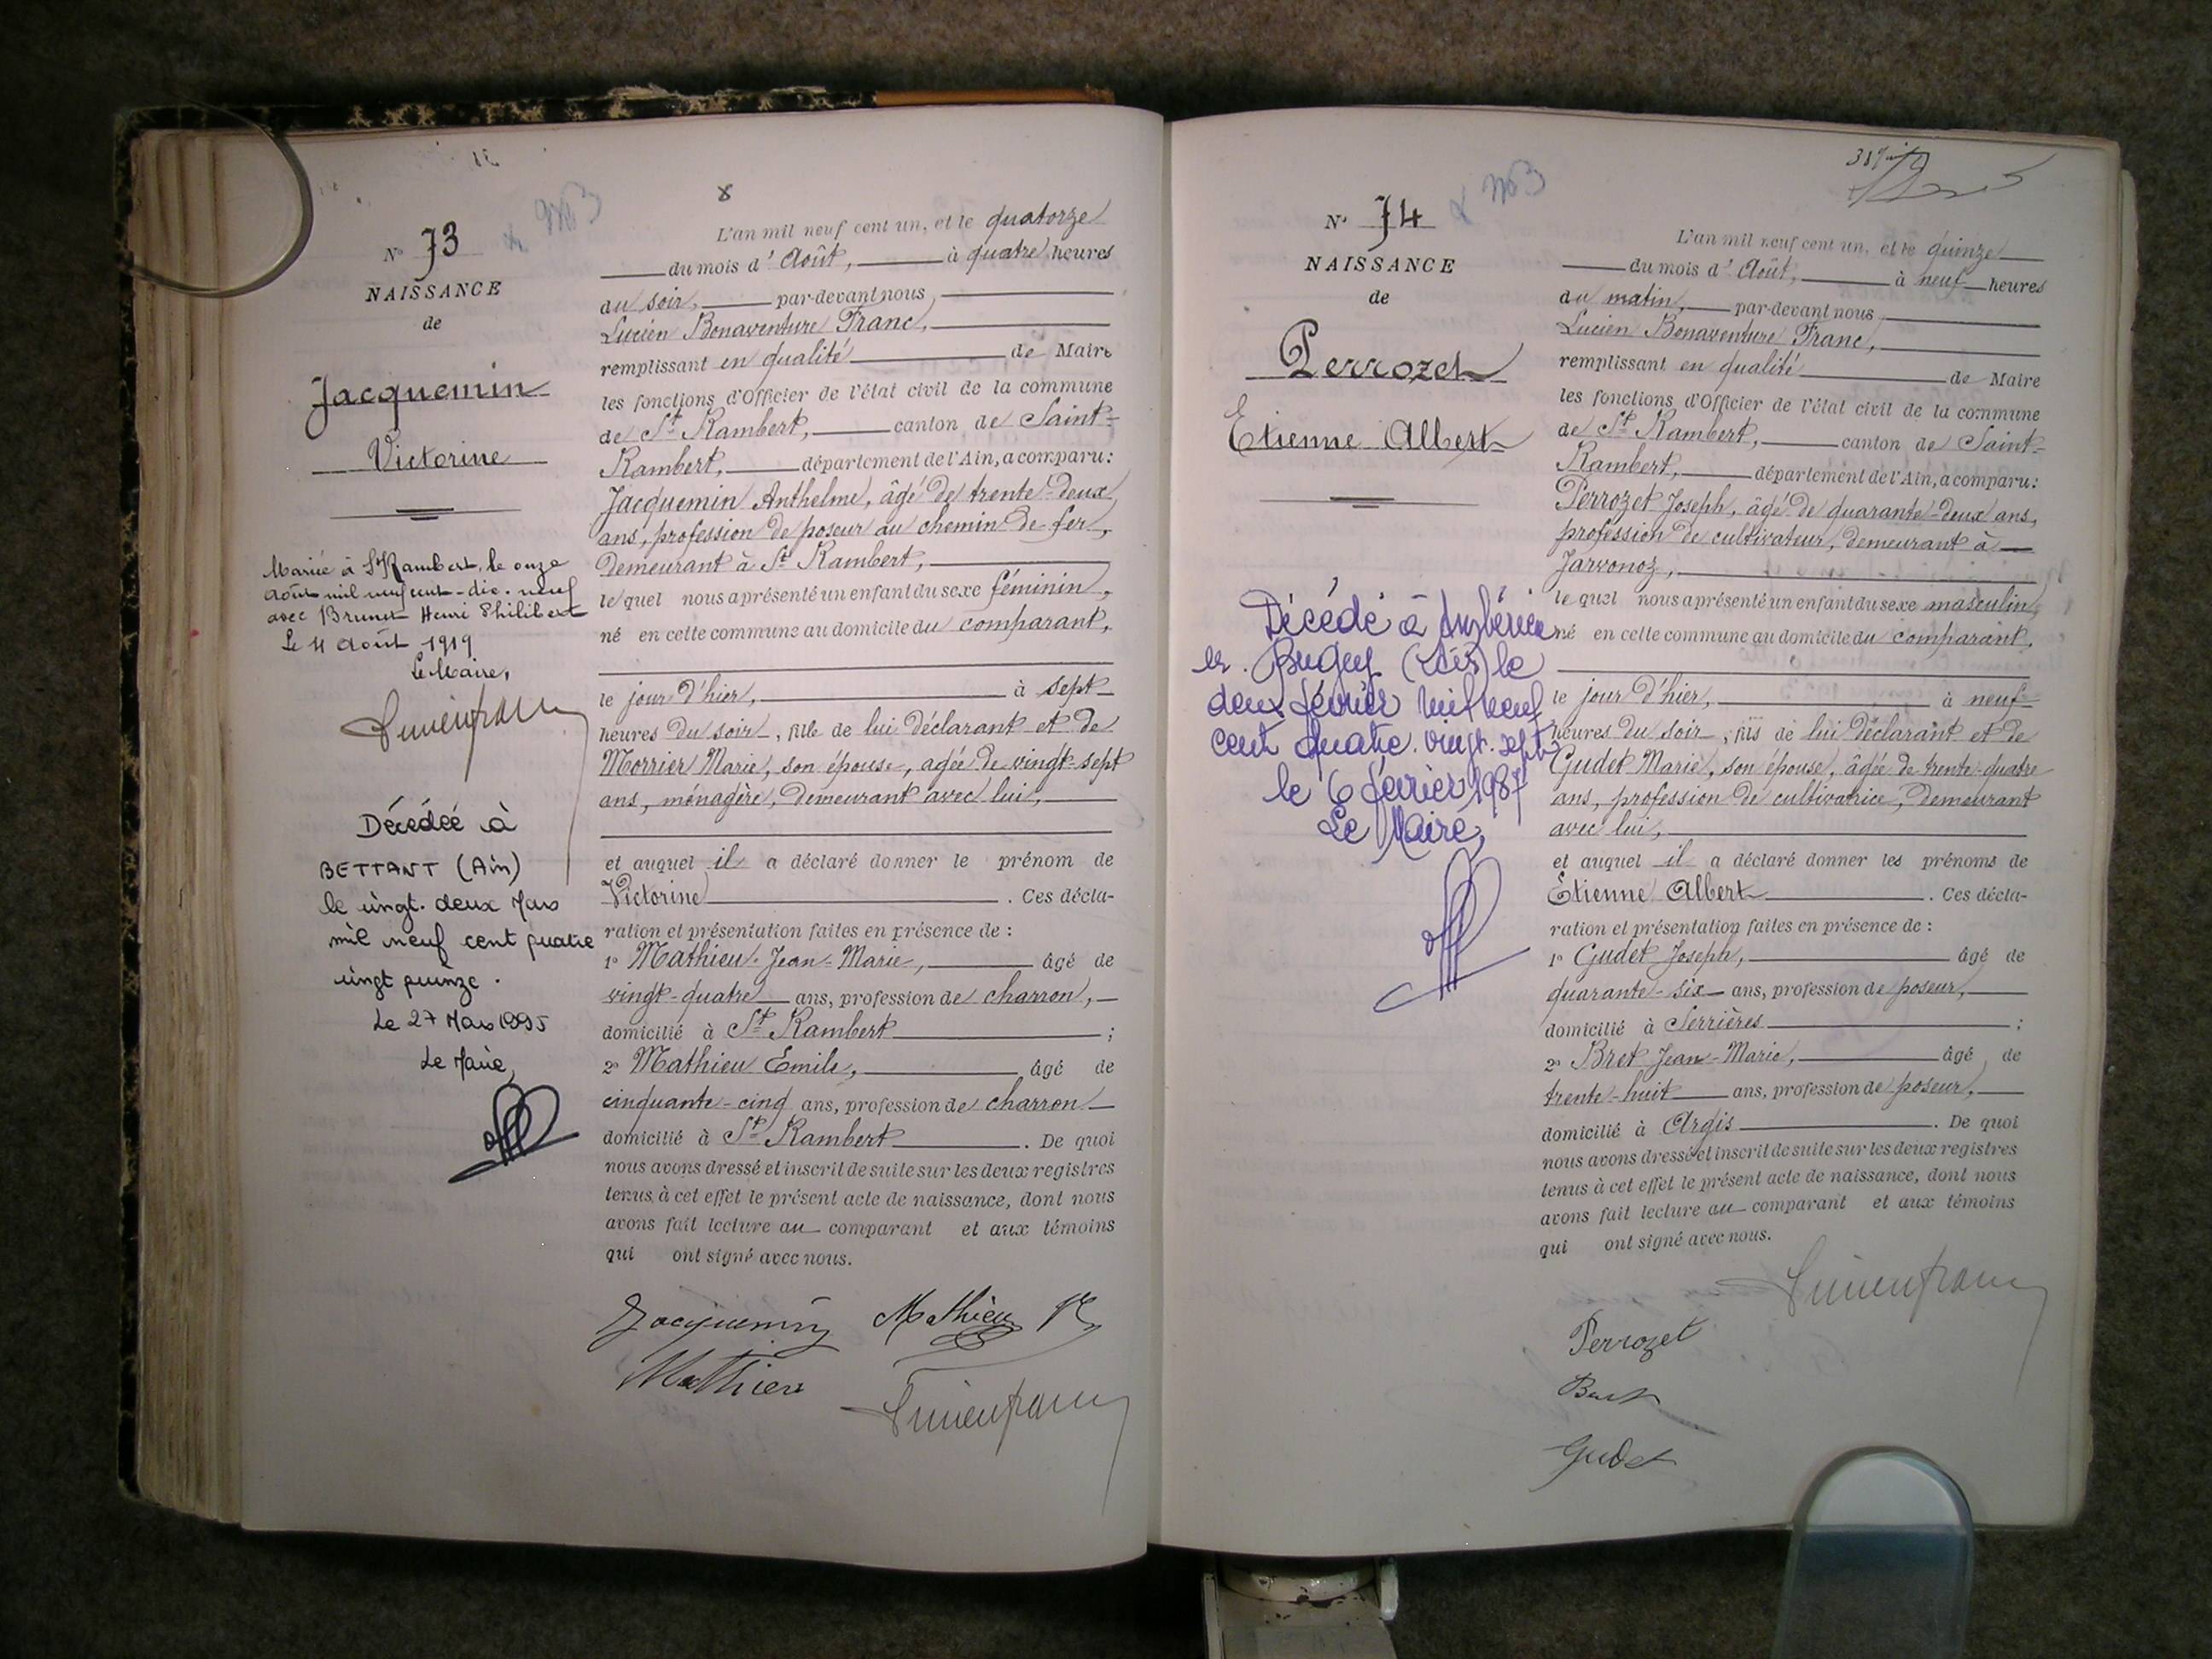 8
N° 73
NAISSANCE
de
Jacquemin
Victorine
Mariée à St Rambert, le onze
Août mil neuf cent-dix-neuf
avec Brunet Henri Philibert
Le 11 Août 1919
Le Maire,
Décédée à
BETTANT (Ain)
le vingt-deux Mars
mil neuf cent quatre
vingt quinze.
Le 27 Mars 1995
Le Maire,
L'an mil neuf cent un, et le quatorze
du mois d'Août, à quatre heures
du soir, par-devant nous
Lucien Bonaventure Franc,
remplissant en qualité de Maire
les fonctions d'Officier de l'état civil de la commune
de St Rambert, canton de Saint-
Rambert, département de l'Ain, a comparu:
Jacquemin Anthelme, âgé de trente-deux
ans, profession de poseur au chemin de fer,
demeurant à St Rambert,
lequel nous a présenté un enfant du sexe féminin,
né en cette commune au domicile du comparant,
le jour d'hier, à sept
heures du soir, fille de lui déclarant et de
Morrier Marie, son épouse, agée de vingt-sept
ans, ménagère, demeurant avec lui,
et auquel il a déclaré donner le prénom de
Victorine. Ces décla-
ration et présentation faites en présence de :
1° Mathieu Jean-Marie, âgé de
vingt-quatre ans, profession de charron,
domicilié à St Rambert ;
2° Mathieu Emile, âgé de
cinquante-cinq ans, profession de charron
domicilié à St Rambert. De quoi
nous avons dressé et inscrit de suite sur les deux registres
tenus à cet effet le présent acte de naissance, dont nous
avons fait lecture au comparant et aux témoins
qui ont signé avec nous.
Jacquemin Mathieu
Mathieu
Lucien Franc
N° 74
NAISSANCE
de
Perrozet
Etienne Albert
Décédé à Ambérieu
en Bugey (Ain) le
deux février mil neuf
cent quatre-vingt-sept
le 6 février 1987
Le Maire,
L'an mil neuf cent un, et le quinze
du mois d'Août, à neuf heures
du matin, par-devant nous
Lucien Bonaventure Franc,
remplissant en qualité de Maire
les fonctions d'Officier de l'état civil de la commune
de St Rambert, canton de Saint-
Rambert, département de l'Ain, a comparu:
Perrozet Joseph, âgé de quarante-deux ans,
profession de cultivateur, demeurant à
Jarvonoz,
lequel nous a présenté un enfant du sexe masculin,
né en cette commune au domicile du comparant,
le jour d'hier, à neuf
heures du soir, fils de lui déclarant et de
Gudet Marie, son épouse, âgée de trente-quatre
ans, profession de cultivatrice, demeurant
avec lui,
et auquel il a déclaré donner les prénoms de
Etienne Albert. Ces décla-
ration et présentation faites en présence de :
1° Gudet Joseph, âgé de
quarante-six ans, profession de poseur,
domicilié à Serrières ;
2° Bret Jean-Marie, âgé de
trente-huit ans, profession de poseur,
domicilié à Argis. De quoi
nous avons dressé et inscrit de suite sur les deux registres
tenus à cet effet le présent acte de naissance, dont nous
avons fait lecture au comparant et aux témoins
qui ont signé avec nous.
Lucien Franc
Perrozet
Bret
Gudet